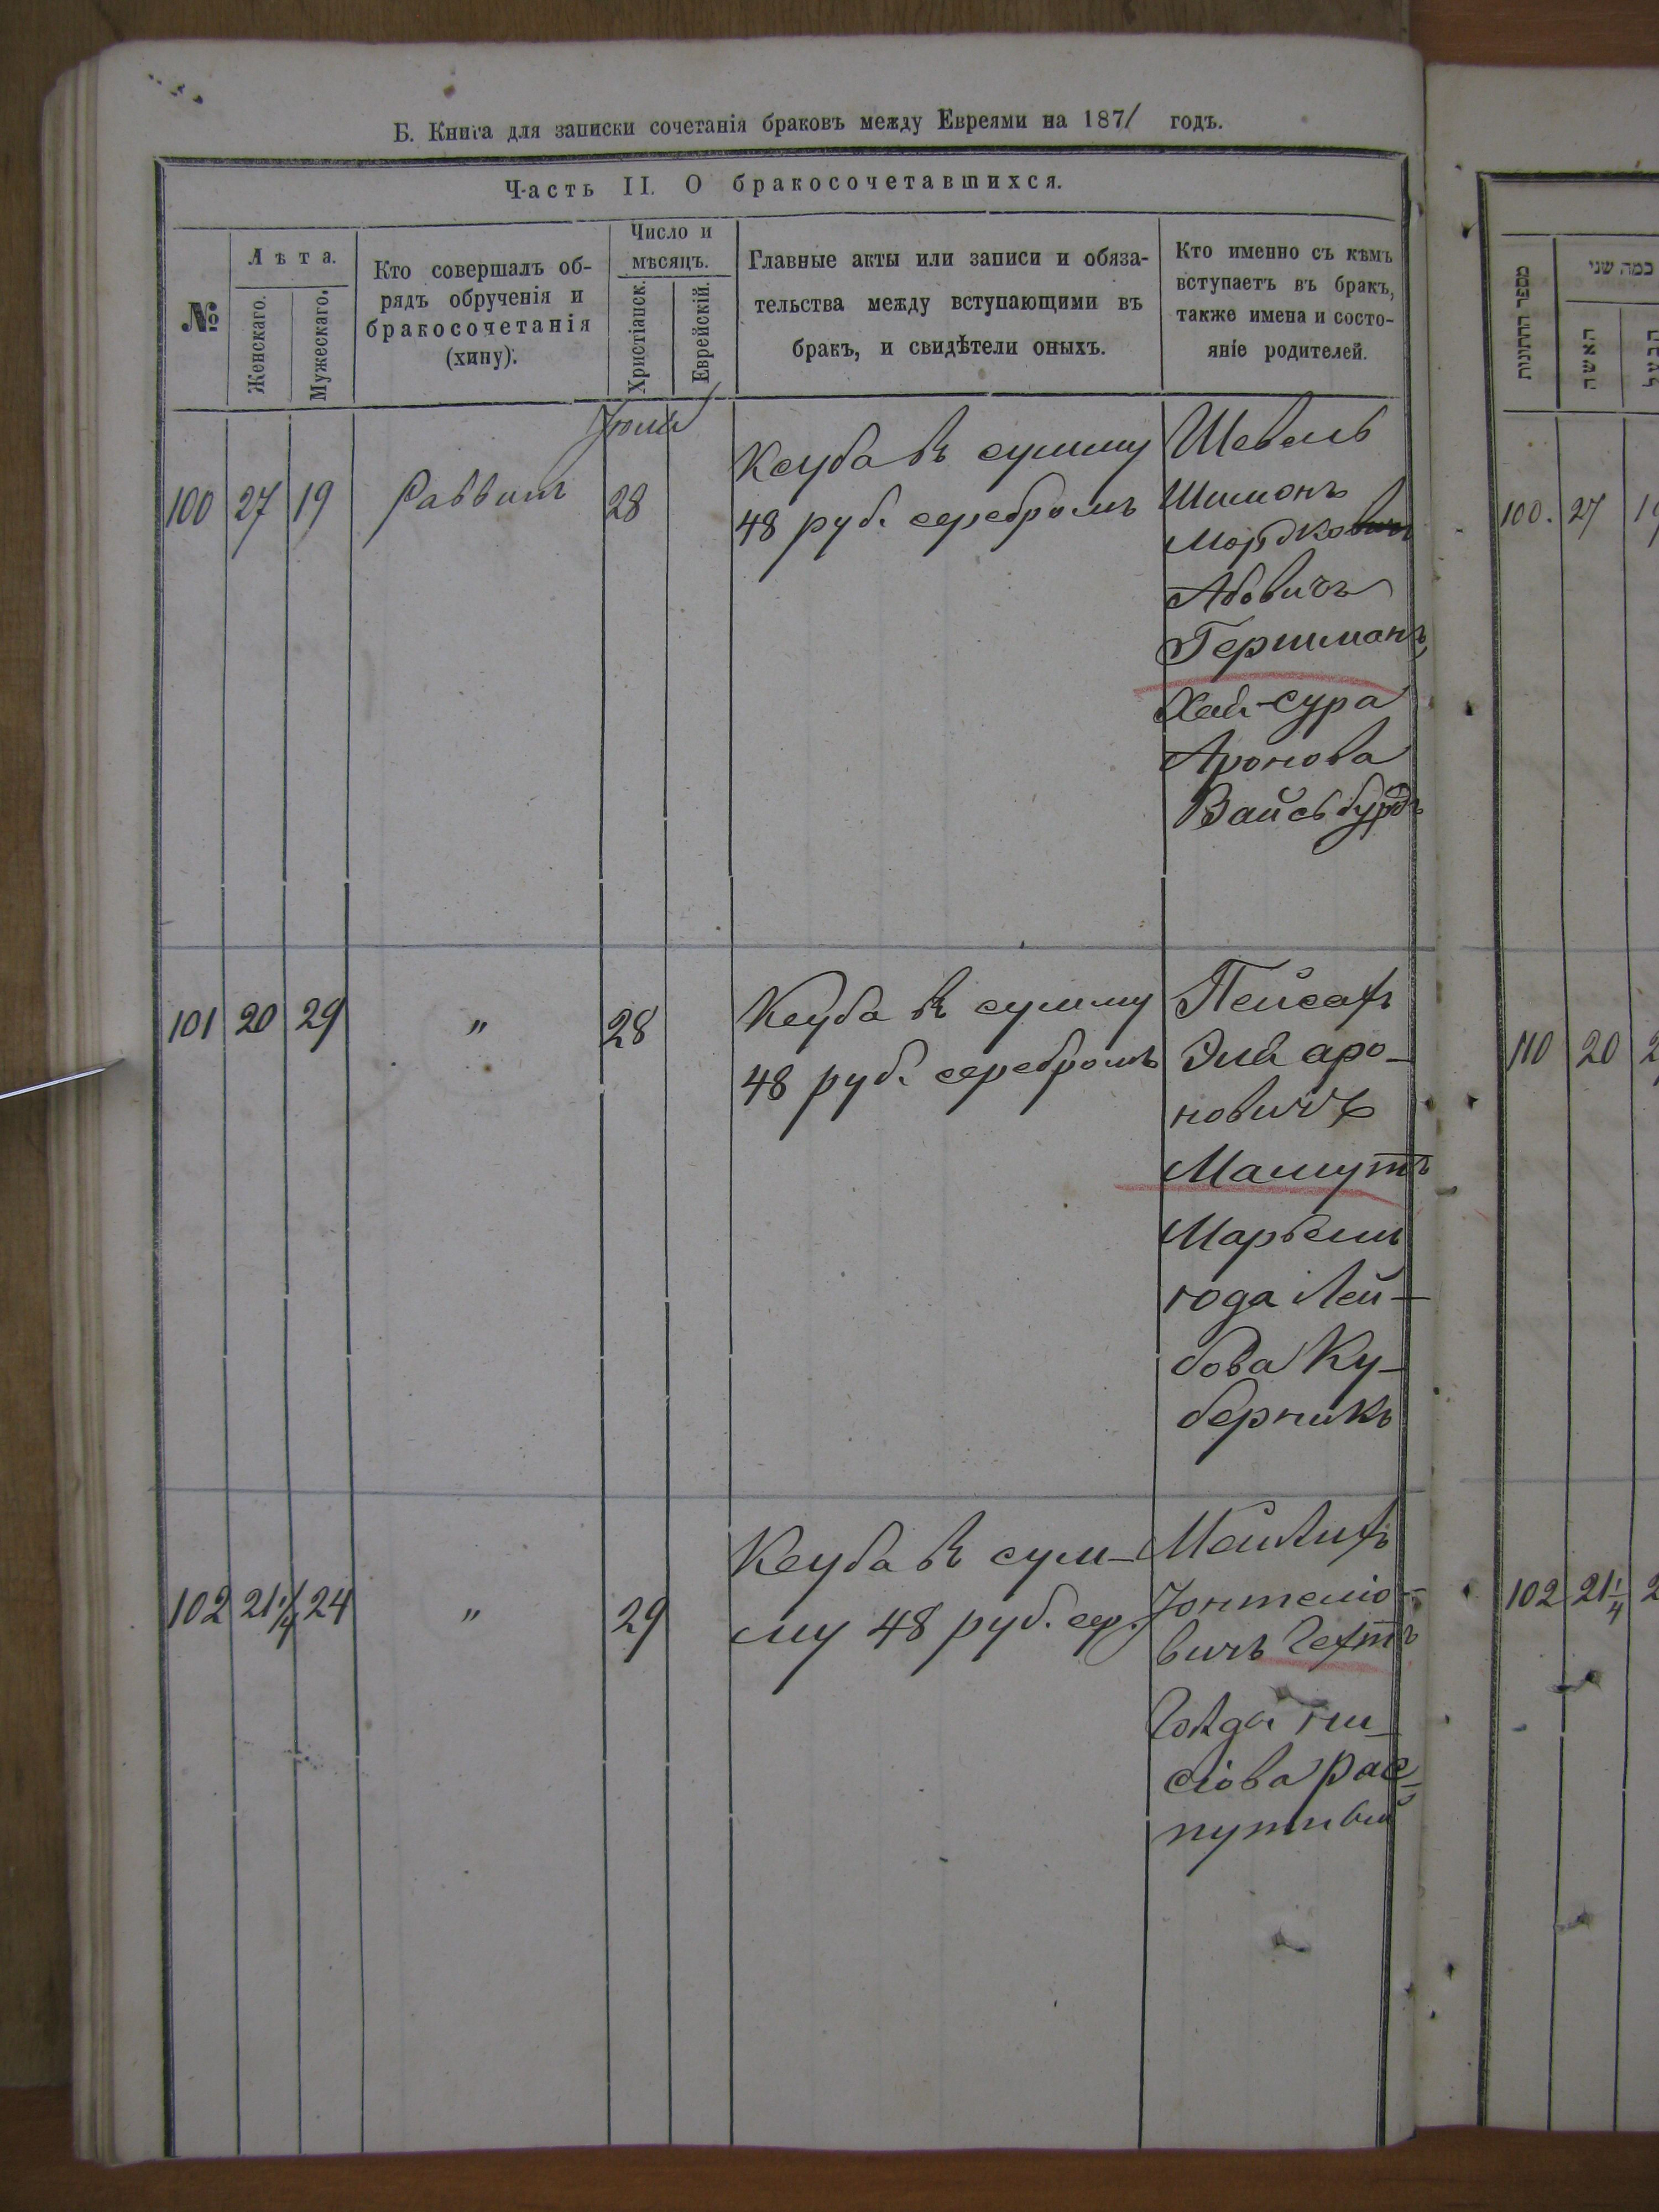 Б. Книга для записки сочетанія браковъ между Евреями на 1871 годъ.
Часть II. О бракосочетавшихся.
№
Лѣта.
Женскаго.
Мужескаго.
Кто совершалъ об-
рядъ обрученія и
бракосочетанія
(хипу).
Число и
мѣсяцъ.
Христіанск.
Еврейскій.
Главные акты или записи и обяза-
тельства между вступающими въ
бракъ, и свидѣтели оныхъ.
Кто именно съ кѣмъ
вступаетъ въ бракъ,
также имена и состо-
яніе родителей.
100 27 19 Раввинъ 28
Ксуба въ сумму
48 руб. серебромъ
Шевель
Шимонъ
Абовичъ
Гершманъ,
Хая-сура
Аронова
101 20 29 " 28
Ксуба въ сумму
48 руб. серебромъ
Пейсахъ
Эля аро-
новичъ
Машутъ
года Лей-
бова Ку-
берникъ
102 21 1/4 24 " 29
Ксуба въ сум-
му 48 руб. сер.
вичъ Гехтъ
Голда
сіова Рас-
מספר החתונות
כמה שני
האשה
הבעל
100. 27
110 20
102 21 1/4